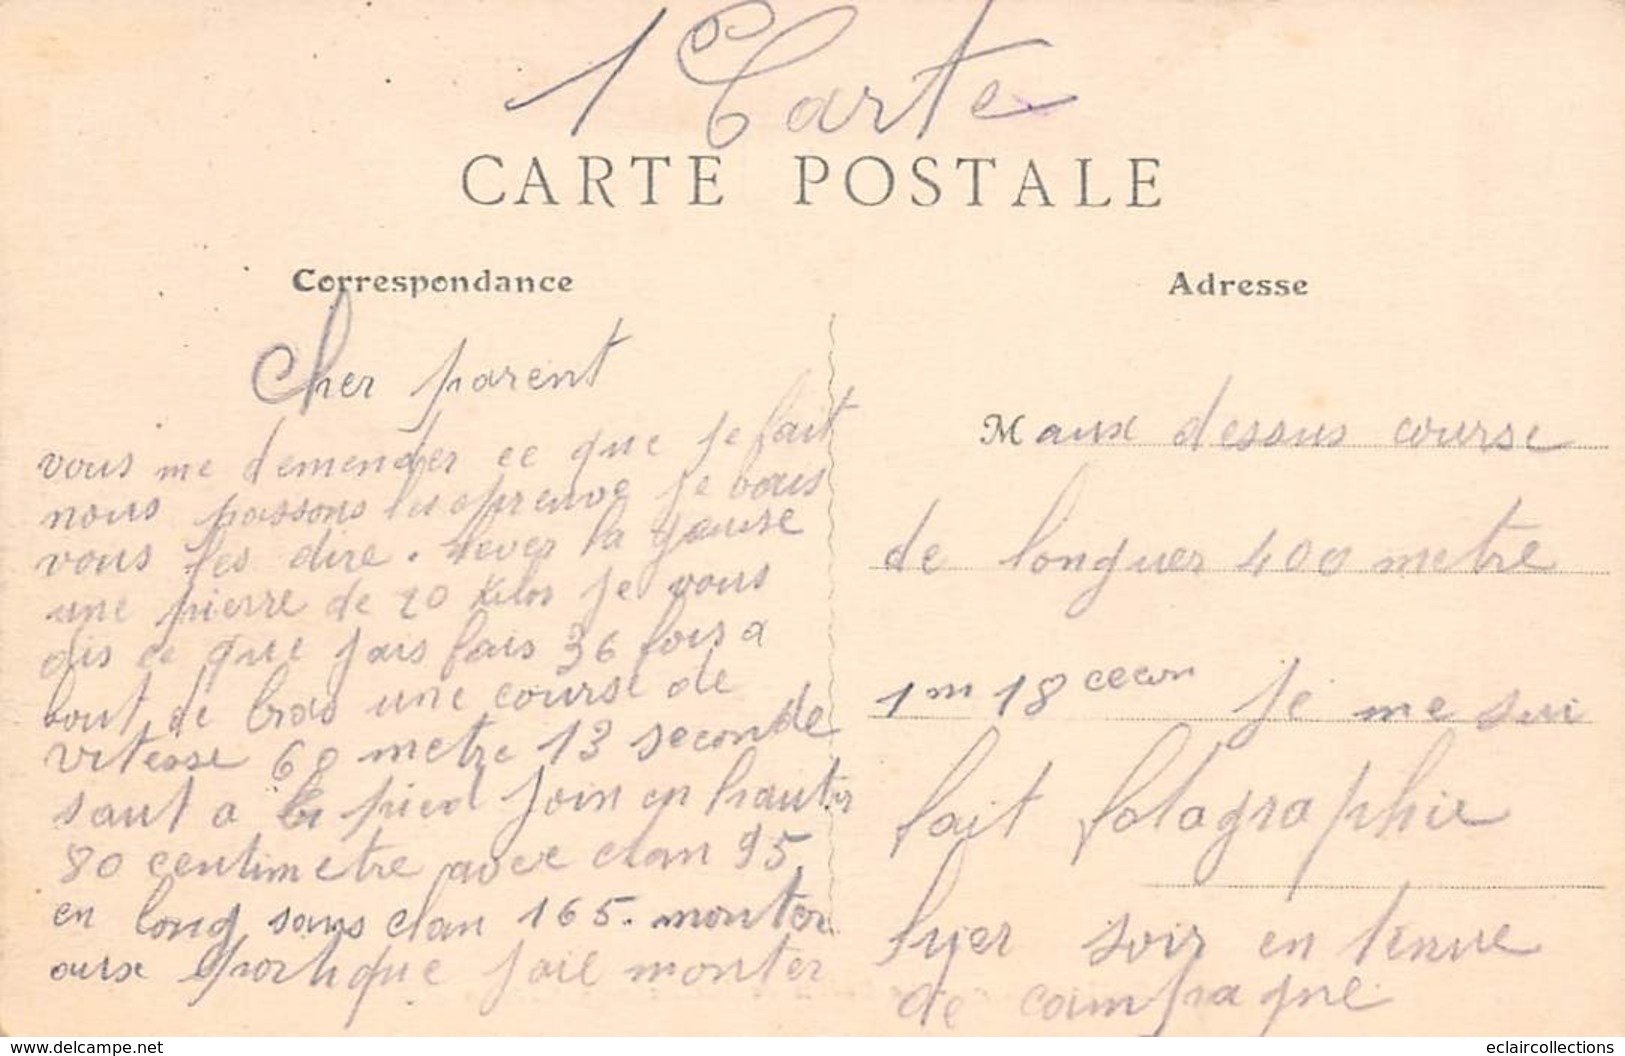 1 Carte
CARTE POSTALE
Correspondance
Cher parent
vous me demender ce que je fait
nous passons les epreuve je vais
vous les dire. lever la geuse
une pierre de 20 kilos je vous
dis ce que jais fais 36 fois a
bout de bras une course de
vitesse 60 metre 13 seconde
saut a pied join en hauter
80 centimetre avec elan 95
en long sans elan 165. monter
aux portique jaie monter
Adresse
M aux dessus course
de longuer 400 metre
1m 18 cecon je me sui
fait fotagraphie
hyer soir en tenue
de campagne
www.delcampe.net
eclaircollections